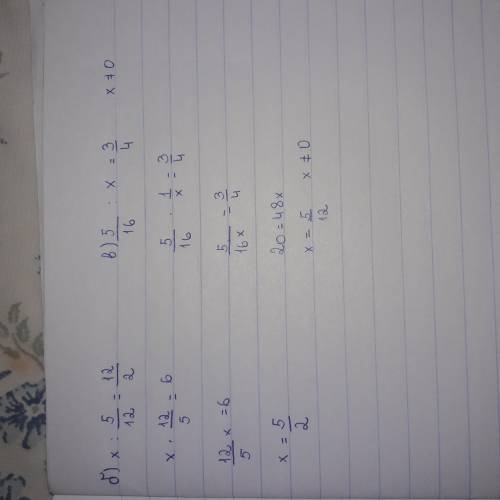 б) x : 5/12 = 12/2
x · 12/5 = 6
12/5 x = 6
x = 5/2
в) 5/16 : x = 3/4 x ≠ 0
5/16 · 1/x = 3/4
5/16x = 3/4
20 = 48x
x = 5/12 x ≠ 0